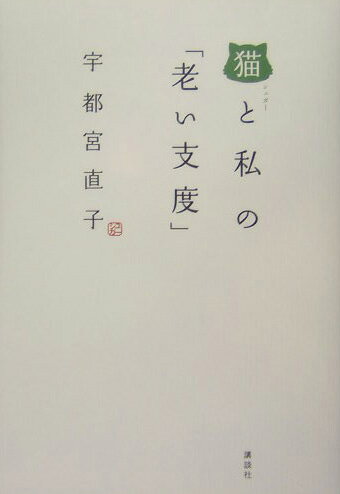 猫と私の
シュガー
「老い支度」
宇都宮直子
講談社